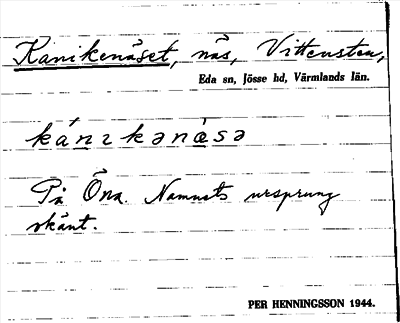 Kanikenäset, näs, Vittensten,
Eda sn, Jösse hd, Värmlands län.
kánıkənä̀sə
På Öna. Namnets ursprung
okänt.
PER HENNINGSSON 1944.